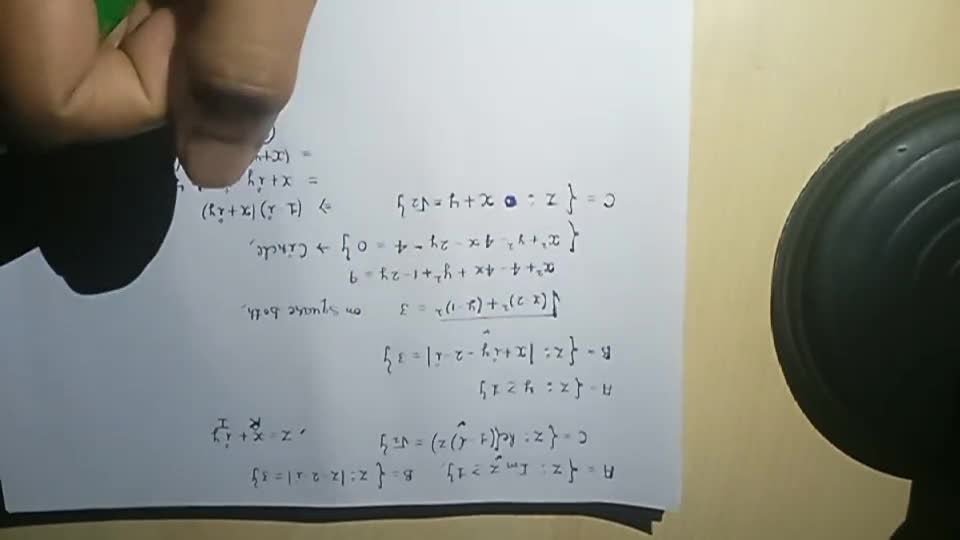 A = { z : Im z ≥ 1}, B = { z : |z - 2 - i| = 3}
C = { z : Re((1 - i) z) = √2}
, z = x + iy
R I
A = { z : y ≥ 1}
B = { z : |x + iy - 2 - i| = 3}
√(x - 2)² + (y - 1)² = 3 on square both,
x² + 4 - 4x + y² + 1 - 2y = 9
{ x² + y² - 4x - 2y - 4 = 0} → Circle,
C = { z : x + y = √2} ⇒ (1 - i)(x + iy)
= x + iy
= (x + y